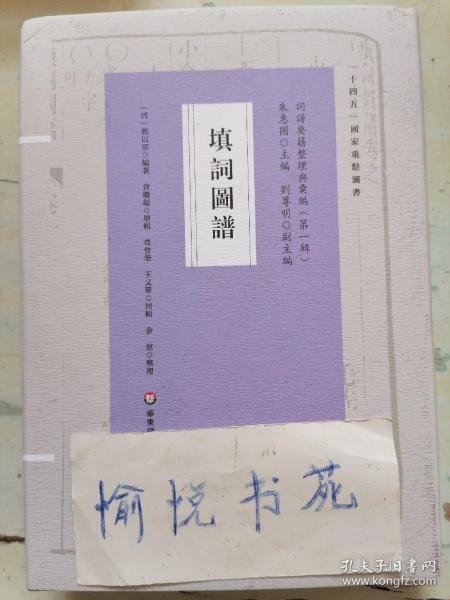 十四五國家重點圖書
詞譜要籍整理與彙編（第一輯）
朱惠國◎主編 劉尊明◎副主編
填詞圖譜
［清］賴以邠◎編著 查繼超◎增輯 查曾榮 王又華◎同輯 余意◎整理
華東師
愉悦书苑
孔夫子旧书网
www.kongfz.com